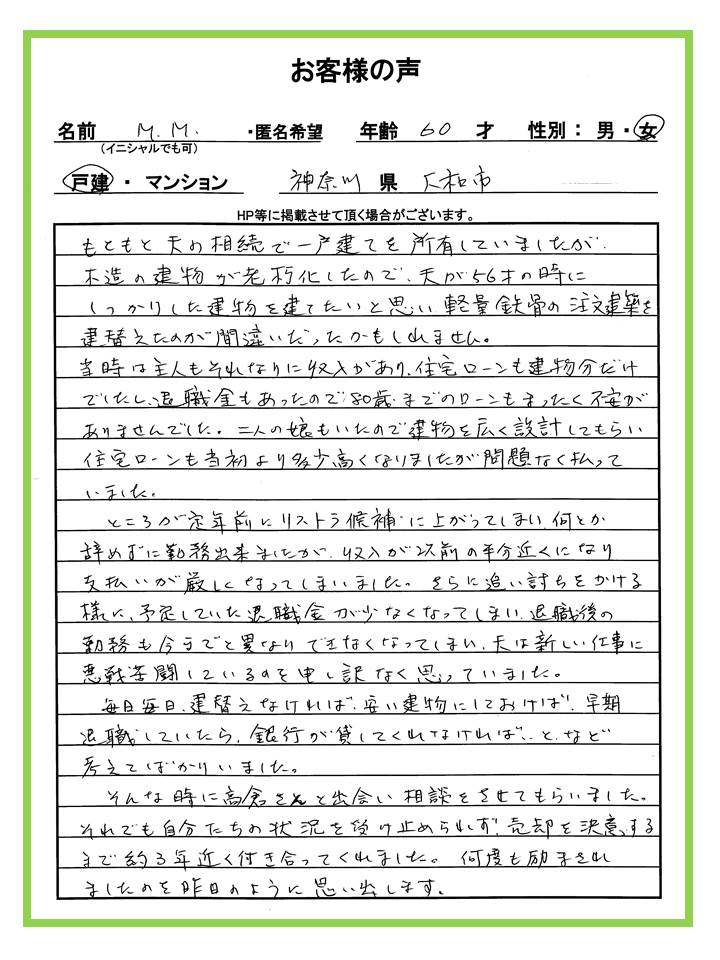 お客様の声
名前 M.M. ・匿名希望 年齢 60 才 性別: 男・女
(イニシャルでも可)
戸建 ・ マンション 神奈川 県 大和市
HP等に掲載させて頂く場合がございます。
もともと夫の相続で一戸建てを所有していましたが、
木造の建物が老朽化したので、夫が56才の時に
しっかりした建物を建てたいと思い軽量鉄骨の注文建築を
建替えたのが間違いだったかもしれません。
当時は主人もそれなりに収入があり、住宅ローンも建物分だけ
でしたし、退職金もあったので80歳までのローンもまったく不安が
ありませんでした。二人の娘もいたので建物を広く設計してもらい
住宅ローンも当初より多少高くなりましたが問題なく払って
いました。
ところが定年前にリストラ候補に上がってしまい、何とか
辞めずに勤務出来ましたが、収入が以前の半分近くになり
支払いが厳しくなってしまいました。さらに追い討ちをかける
様に、予定していた退職金が少なくなってしまい、退職後の
勤務も今までと異なりできなくなってしまい、夫は新しい仕事に
悪戦苦闘しているのを申し訳なく思っていました。
毎日毎日、建替えなければ、安い建物にしておけば、早期
退職していたら、銀行が貸してくれなければ、と、など
考えてばかりいました。
そんな時に高倉さんと出会い相談をさせてもらいました。
それでも自分たちの状況を受け止められず、売却を決意する
まで約3年近く付き合ってくれました。何度も励まされ
ましたのを昨日のように思い出します。